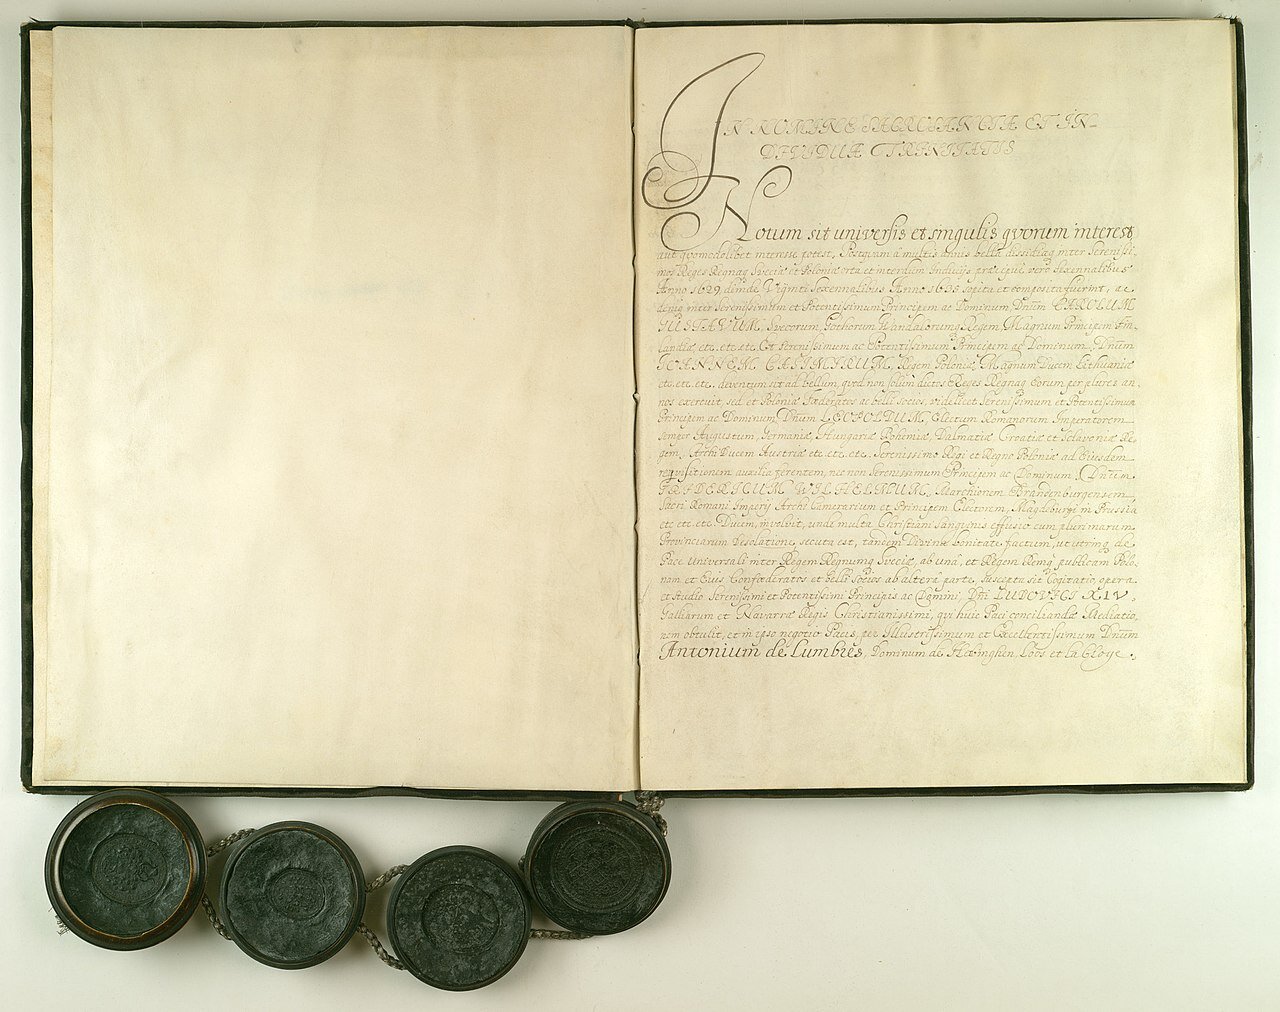 IN NOMINE SACROSANCTÆ ET IN-
DIVIDUÆ TRINITATIS
Notum sit universis et singulis qvorum interest,
aut qvomodolibet interesse potest, Postqvam â multis annis bella dissidiaq inter Serenissi-
mos Reges Regnaq Sveciæ et Poloniæ orta et interdum Inducijs præcipuè vero Sexennalibus
Anno 1629 deinde Viginti Sexennalibus Anno 1635 sopita et composita fuerint, ac
deniq inter Serenissimum et Potentissimum Principem ac Dominum, Dnũm CAROLUM
GUSTAVUM, Svecorum, Gothorum, Wandalorumq Regem, Magnum Principem Fin-
landiæ, etc. etc. etc. Et Serenissimum ac Potentissimum Principem ac Dominum, Dnũm
IOANNEM CASIMIRUM, Regem Poloniæ, Magnum Ducem Lithuaniæ
etc. etc. etc. deventum sit ad bellum, qvod non solum dictos Reges Regnaq Eorum per plures an-
nos exercuit, sed et Poloniæ Fœderatos ac belli socios, videlicet Serenissimum et Potentissimum
Principem ac Dominum, Dnũm LEOPOLDUM, Electum Romanorum Imperatorem
Semper Augustum, Germaniæ, Hungariæ Bohemiæ, Dalmatiæ Croatiæ et Sclavoniæ Re-
gem, ArchiDucem Austriæ etc. etc. etc. Serenissimo Regi et Regno Poloniæ ad Eiusdem
reqvisitionem auxilia ferentem, nec non Serenissimum Principem ac Dominum, Dnũm
FRIDERICUM WILHELMUM, Marchionem Brandenburgensem,
Sacri Romani Imperij Archi Camerarium et Principem Electorem, Magdeburgi in Prussia
etc. etc. etc. Ducem, involvit, unde multa Christiani sangvinis effusio cum plurimarum
Provinciarum Desolatione, secuta est, tandem Divinâ bonitate factum, ut utrinq de
Pace Universali inter Regem Regnumq Sveciæ, ab unâ, et Regem Remq publicam Polo-
nam et Eius Confœderatos et belli Socios ab alterâ parte, suscepta sit Cogitatio, operâ
et studio Serenissimi et Potentissimi Principis ac Domini, Dñi LUDOVICI XIV,
Galliarum et Navarræ Regis Christianissimi, qvi huic Paci conciliandæ Mediatio-
nem obtulit, et in ipso negotio Pacis, per Illustrissimum et Excellentissimum Dnũm
Antonium de Lumbres, Dominum de Herbinghen, Loos et la Cloye,